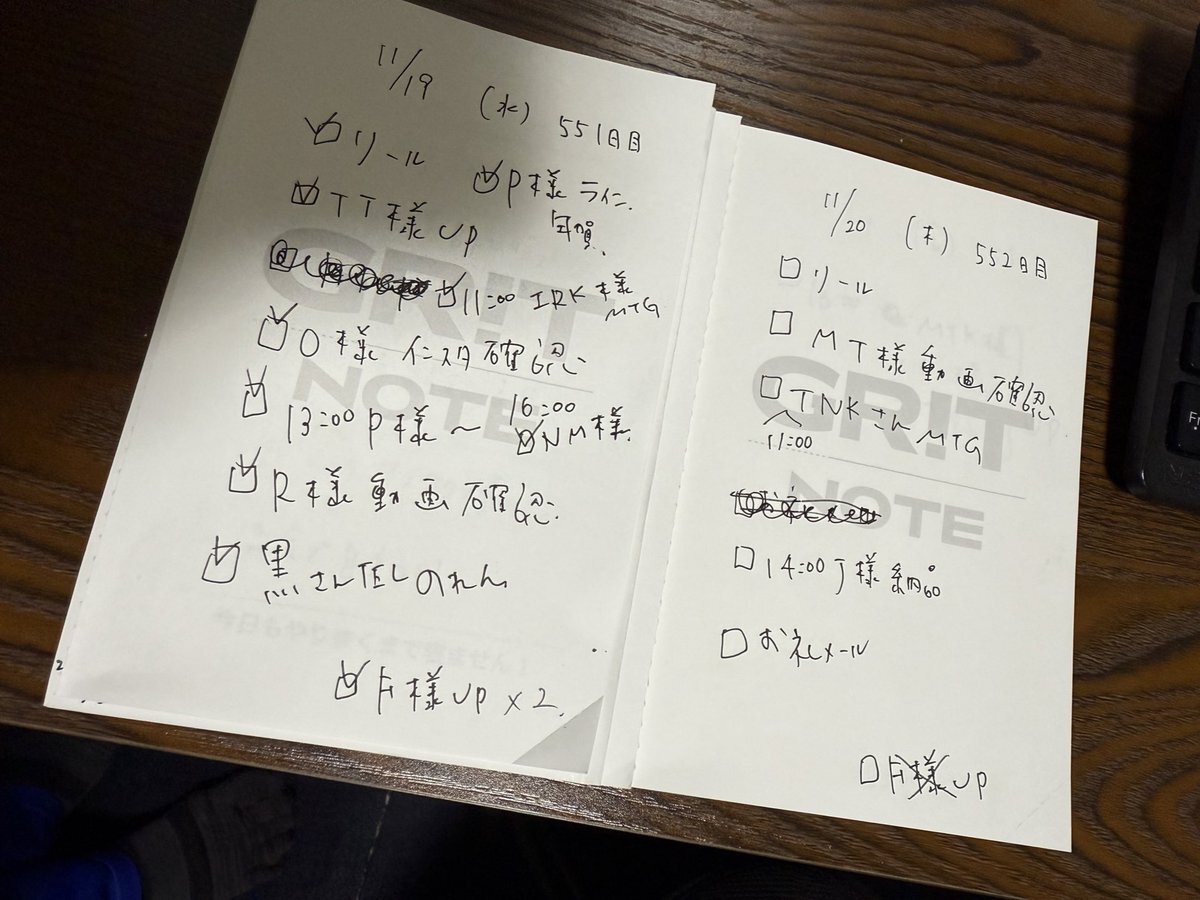 11/19 (水) 551日目
☑ リール
☑ P様 ライン
年賀
☑ TT様 UP
☑ 11:00 IRK様 MTG
☑ O様 インスタ確認
☑ 13:00 P様〜
16:00
☑ NM様
☑ R様 動画確認
☑ 黒さん TEL のれん
☑ F様 UP x 2
GRIT
NOTE
11/20 (木) 552日目
☐ リール
☐ MT様 動画確認
☐ TNKさん MTG
11:00
☐ 14:00 J様 納品
☐ お礼メール
☐ F様 UP
GRIT
NOTE